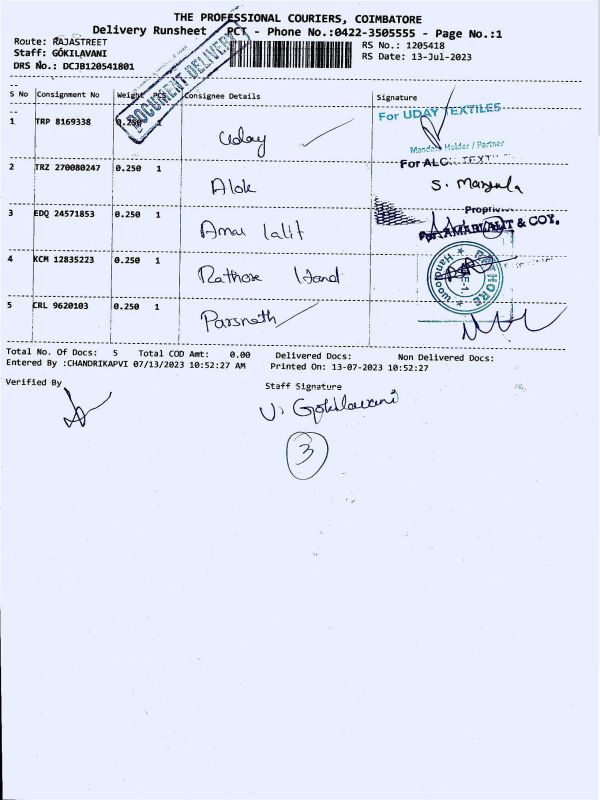 THE PROFESSIONAL COURIERS, COIMBATORE
Delivery Runsheet PCT - Phone No.:0422-3505555 - Page No.:1
Route: RAJASTREET RS No.: 1205418
Staff: GOKILAVANI RS Date: 13-Jul-2023
DRS No.: DCJB120541801
DOCUMENT DELIVERY
S No Consignment No Weight PCS Consignee Details Signature
For UDAY TEXTILES
1 TRP 8169338 0.250 1 Uday
Mandate Holder / Partner
2 TRZ 270080247 0.250 1 Alok
S. Manjula
3 EDQ 24571853 0.250 1 Amar lalit
AMARLALIT & COY.
4 KCM 12835223 0.250 1 Rathore Hand
5 CRL 9620103 0.250 1 Parsnath
Total No. Of Docs: 5 Total COD Amt: 0.00 Delivered Docs: Non Delivered Docs:
Entered By :CHANDRIKAPVI 07/13/2023 10:52:27 AM Printed On: 13-07-2023 10:52:27
Verified By Staff Signature
V. Gokilavani
3